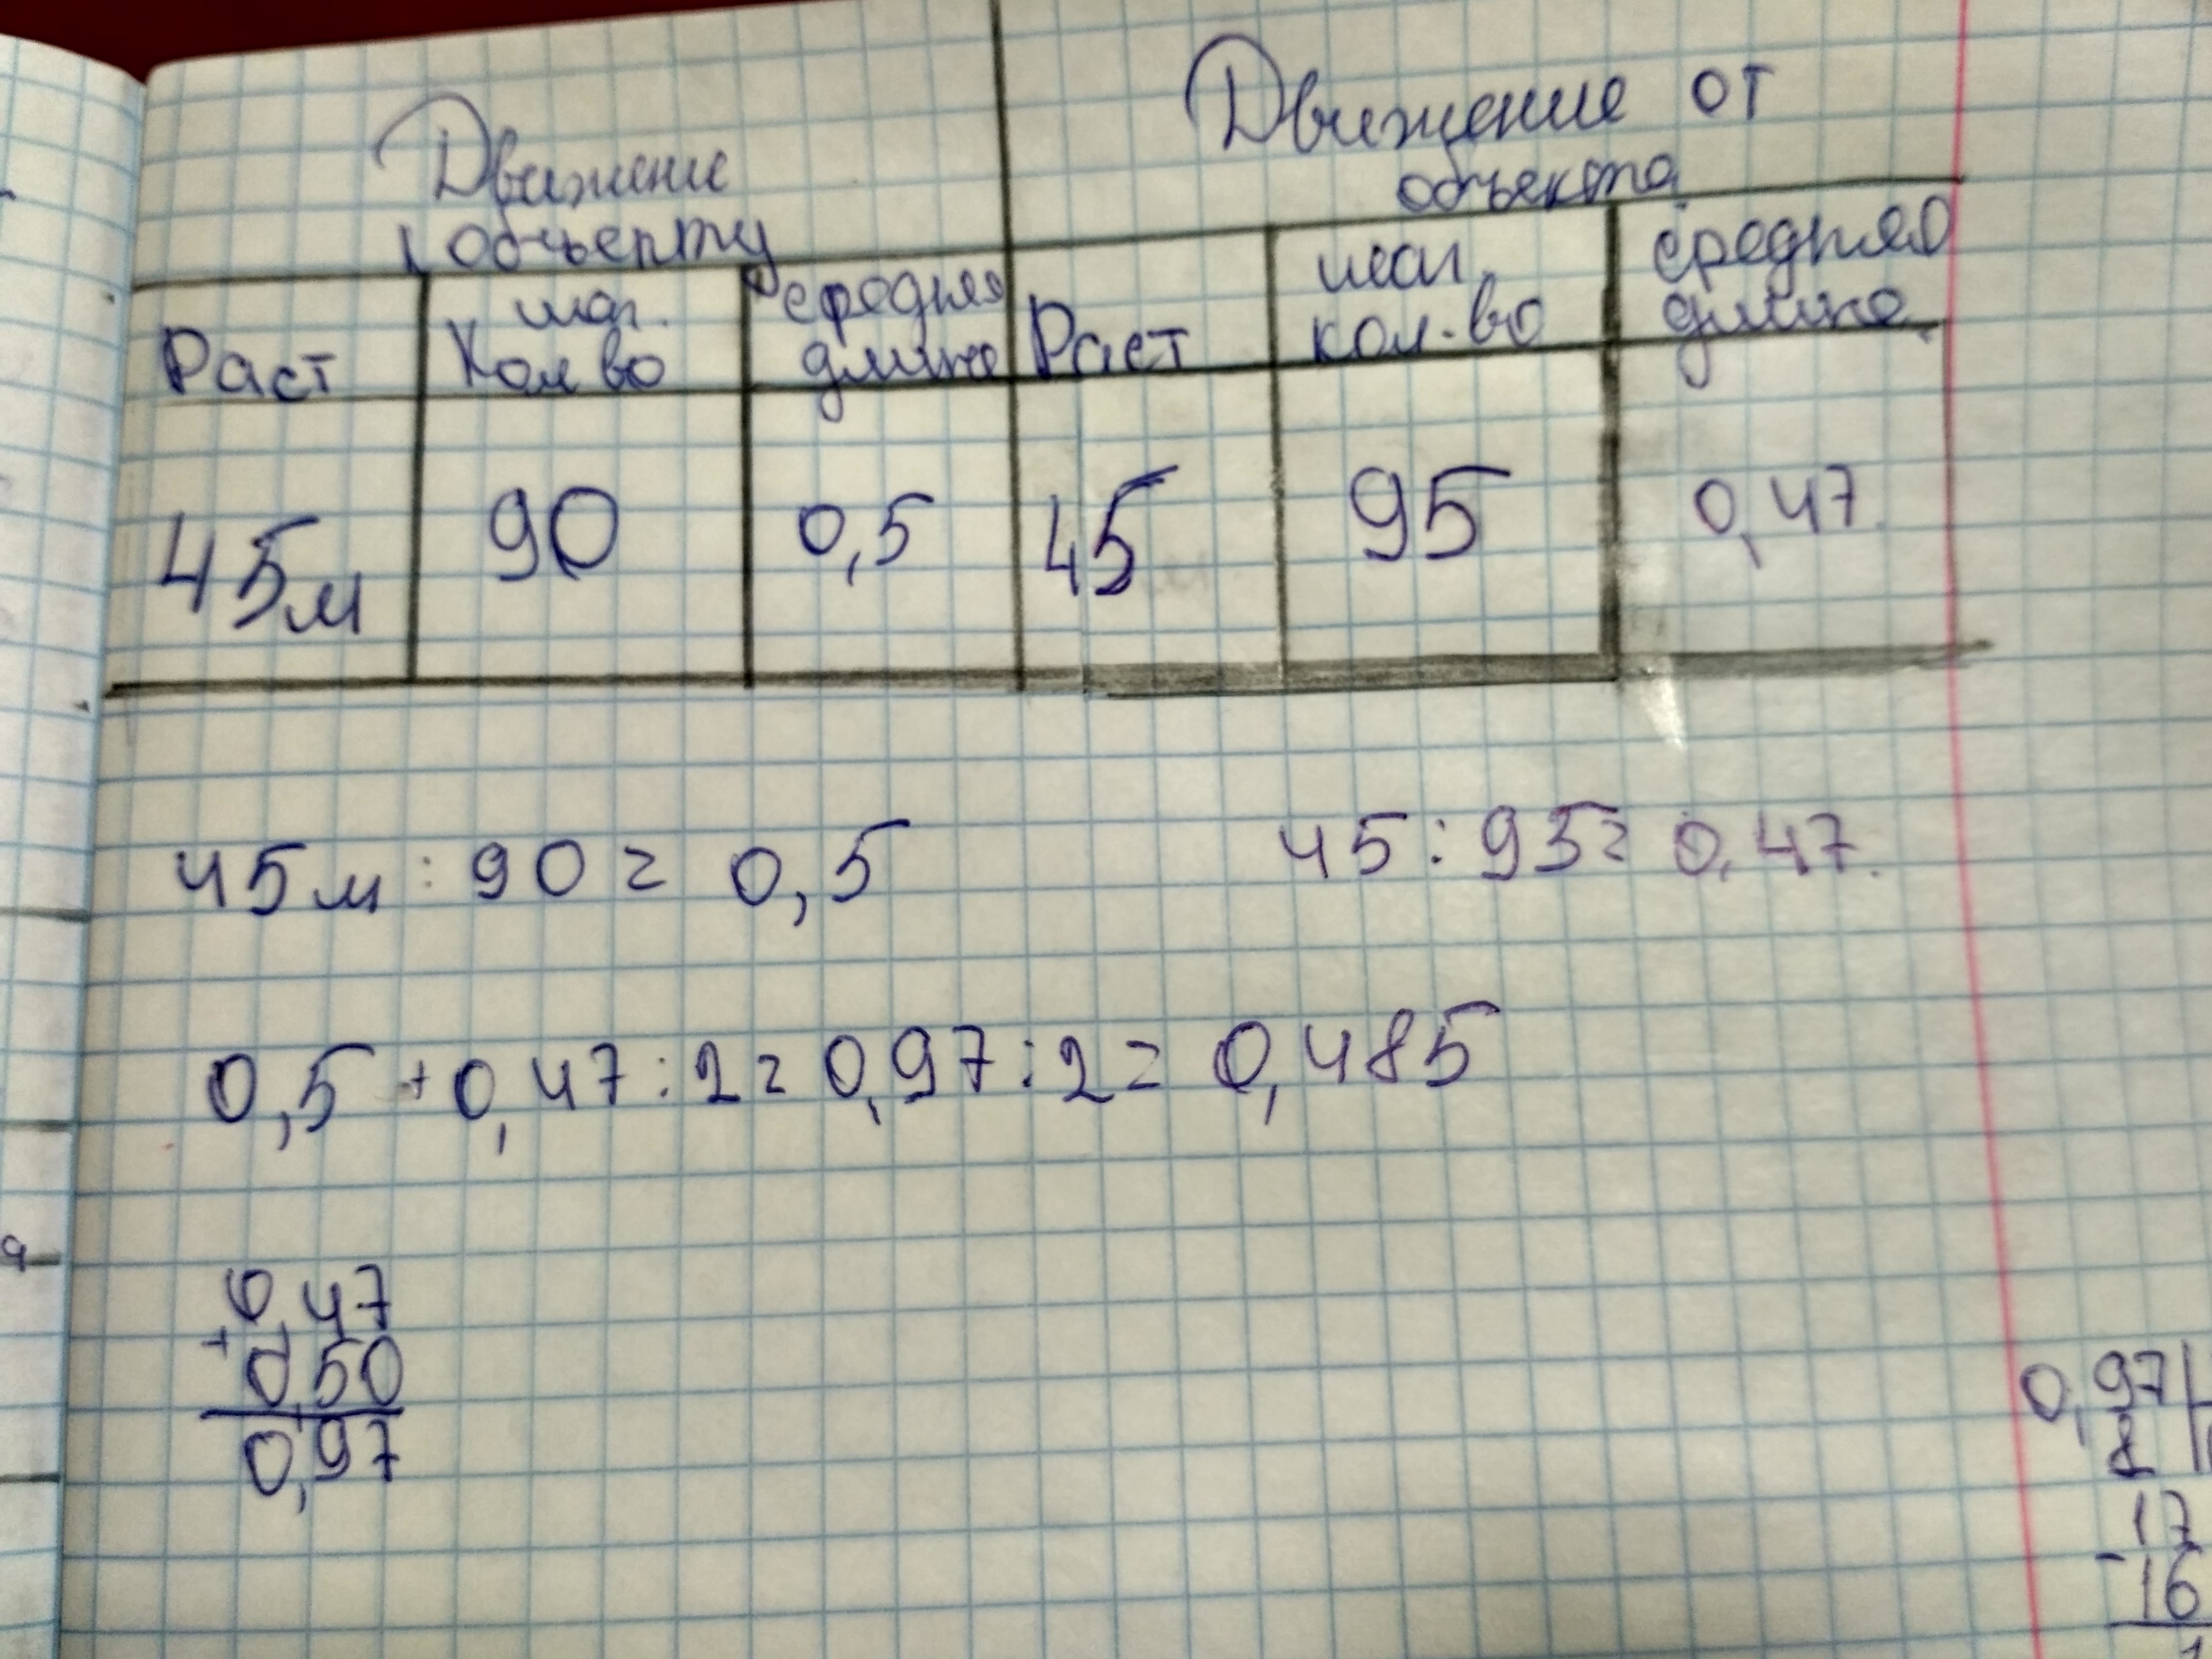 Движение
к объекту
Движение от
объекта
Раст
шаг.
Кол во
средняя
длина
Раст
шаг.
кол-во
средняя
длина
45м 90 0,5 45 95 0,47
45м : 90 = 0,5 45 : 95 = 0,47.
0,5 + 0,47 : 2 = 0,97 : 2 = 0,485
0,47
+
0,50
0,97
0,97
8
17
- 16
1
9